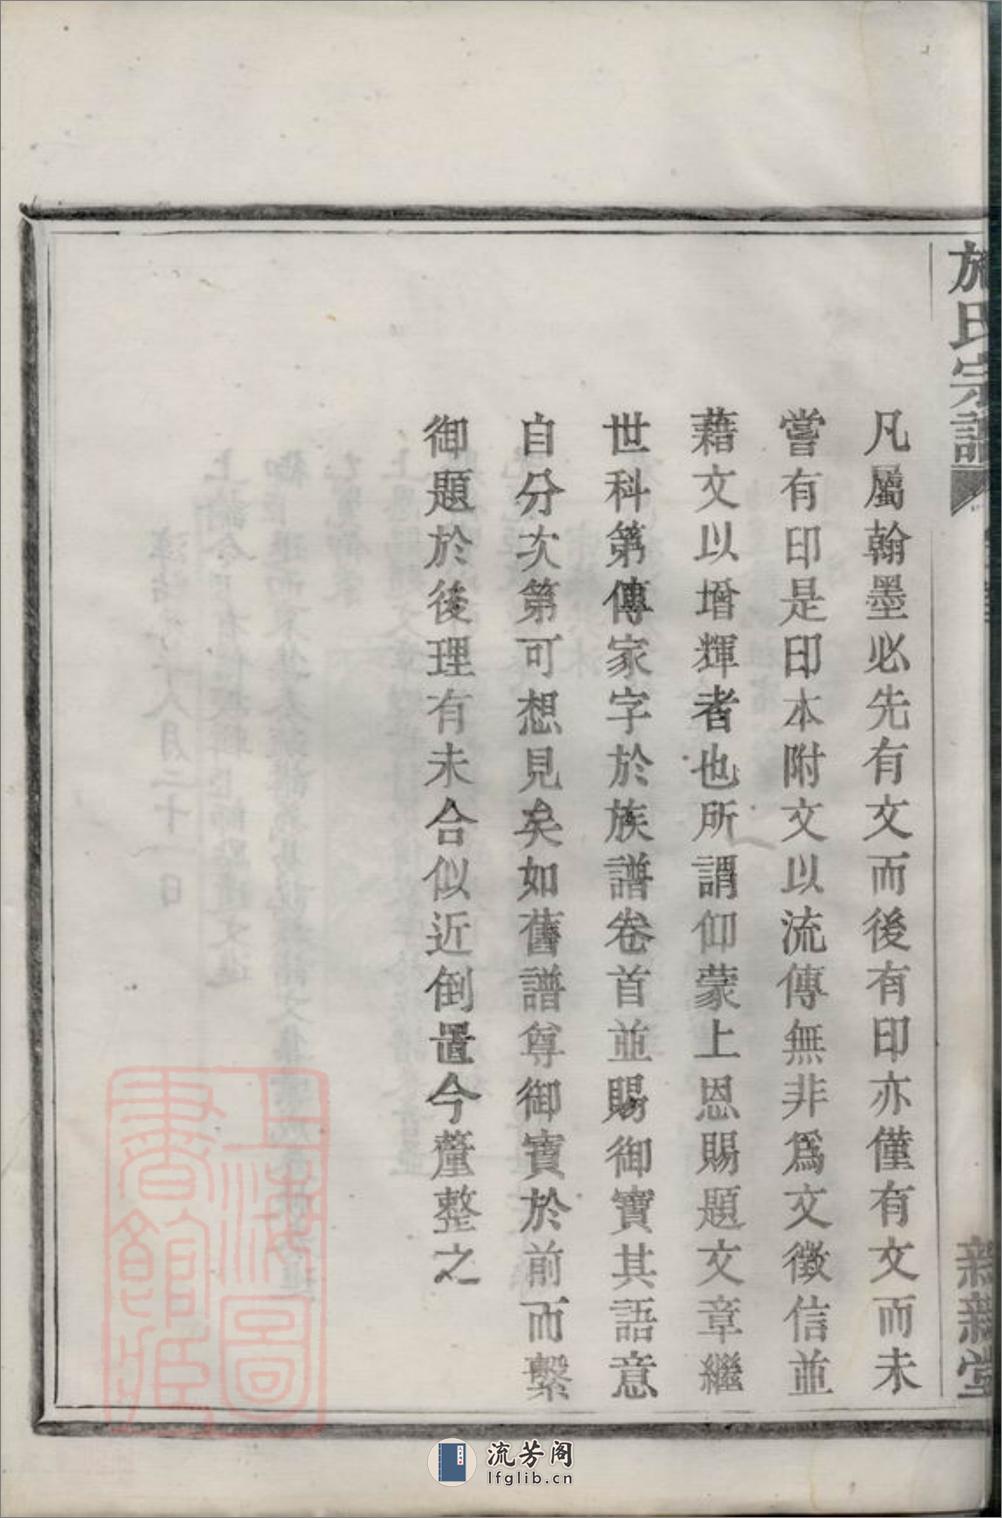 施氏宗譜
凡屬翰墨必先有文而後有印亦僅有文而未
嘗有印是印本附文以流傳無非爲文徵信並
藉文以增輝者也所謂仰蒙上恩賜題文章繼
世科第傳家字於族譜卷首並賜御寶其語意
自分次第可想見矣如舊譜尊御寶於前而繫
御題於後理有未合似近倒置今釐整之
上海圖書館藏
流芳阁
lfglib.cn